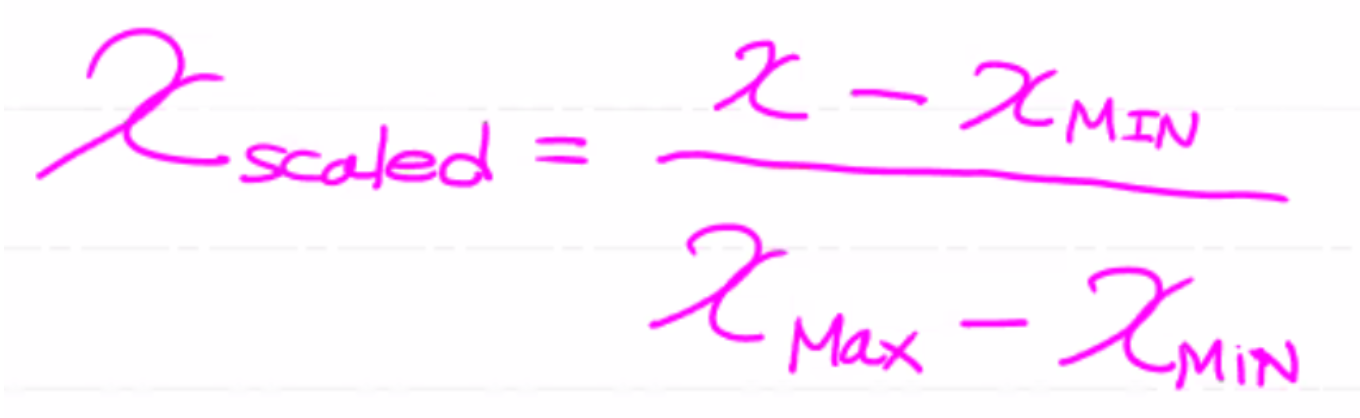 x scaled = x - x MIN
x Max - x MiN